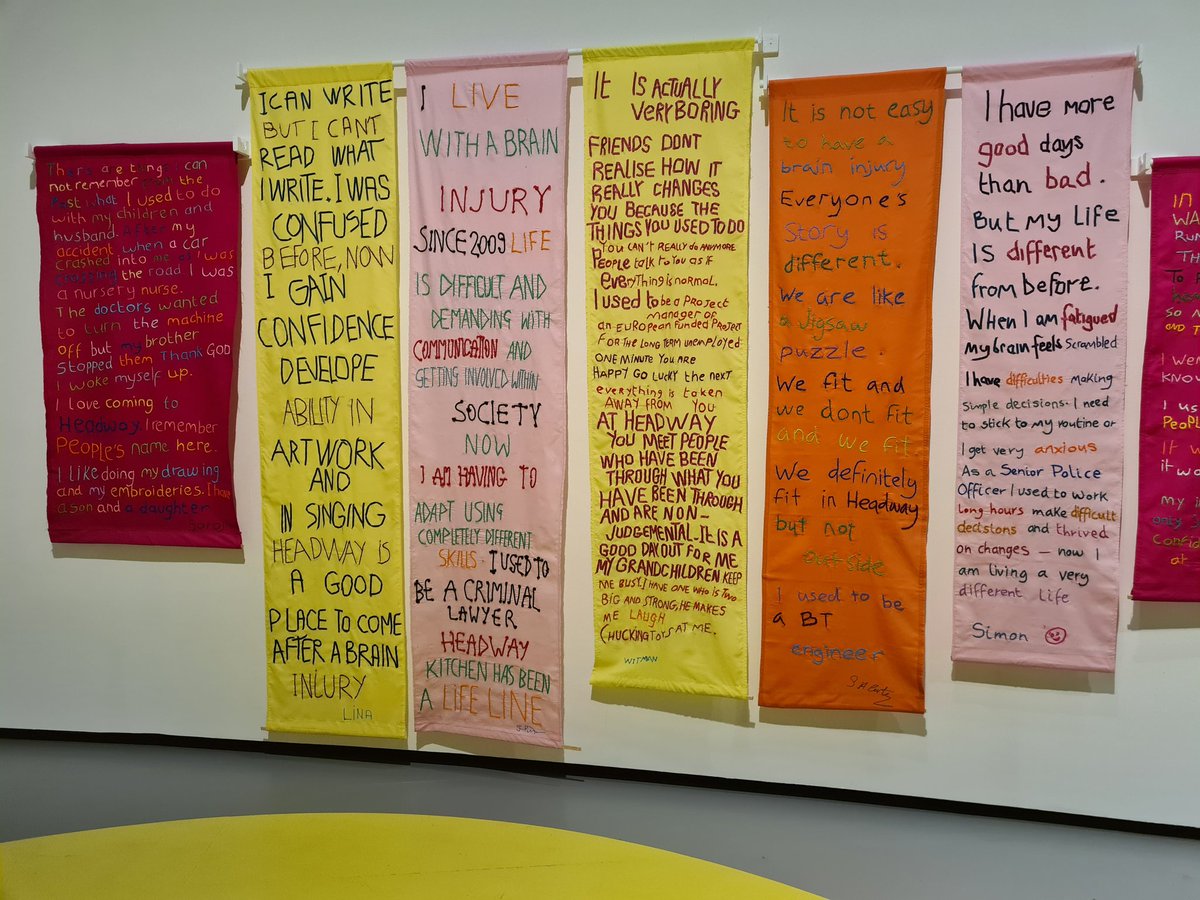 There are things I can
not remember from the
Past what I used to do
with my children and
husband. After my
accident when a car
crashed into me as I was
crossing the road I was
a nursery nurse.
The doctors wanted
to turn the machine
off but my brother
stopped them Thank GOD
I woke myself up.
I love coming to
Headway. I remember
PEOPLE'S name here.
I like doing my drawing
and my embroideries. I have
a son and a daughter
I CAN WRITE
BUT I CANT
READ WHAT
I WRITE. I WAS
CONFUSED
BEFORE, NOW
I GAIN
CONFIDENCE
DEVELOPE
ABILITY IN
ARTWORK
AND
IN SINGING
HEADWAY IS
A GOOD
PLACE TO COME
AFTER A BRAIN
INJURY
LINA
I LIVE
WITH A BRAIN
INJURY
SINCE 2009 LIFE
IS DIFFICULT AND
DEMANDING WITH
COMMUNICATION AND
GETTING INVOLVED WITHIN
SOCIETY
NOW
I AM HAVING TO
ADAPT USING
COMPLETELY DIFFERENT
SKILLS. I USED TO
BE A CRIMINAL
LAWYER
HEADWAY
KITCHEN HAS BEEN
A LIFE LINE
IT IS ACTUALLY
VERY BORING
FRIENDS DONT
REALISE HOW IT
REALLY CHANGES
YOU BECAUSE THE
THINGS YOU USED TO DO
YOU CAN'T REALLY DO ANYMORE
PEOPLE talk to YOU AS IF
everything is normal.
I used to be a PROJECT
manager of
an EUROPEAN FUNDED PROJECT
FOR THE LONG TERM UNEMPLOYED
ONE MINUTE YOU ARE
HAPPY GO LUCKY the next
everything is taken
AWAY FROM YOU
AT HEADWAY
YOU MEET PEOPLE
WHO HAVE BEEN
THROUGH WHAT YOU
HAVE BEEN THROUGH
AND ARE NON-
JUDGEMENTAL. IT IS A
GOOD DAY OUT FOR ME
MY GRANDCHILDREN KEEP
ME BUSY. I HAVE ONE WHO IS TWO
BIG AND STRONG, HE MAKES
ME LAUGH
CHUCKING TOYS AT ME.
WITMAN
It is not easy
to have a
brain injury
Everyone's
Story is
different.
We are like
a Jigsaw
puzzle.
We fit and
we dont fit
and we fit.
We definitely
fit in Headway
but not
out-side
I used to be
a BT
engineer
I have more
good days
than bad.
But my life
IS different
from before.
When I am fatigued
My brain feels Scrambled
I have difficulties making
Simple decisions. I need
to stick to my routine or
I get very anxious
As a Senior Police
Officer I used to work
Long hours make difficult
decisions and thrived
on changes – now I
am living a very
different life
Simon
IN
WA
RUN
TH
TO
SO
AND
I WE
KNOW
I us
PEOPL
IT W
it wo
my
only
Confid
at